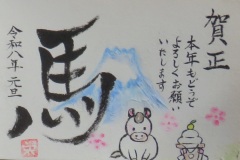 賀正
本年もどうぞ
よろしくお願い
いたします
馬
令和八年元旦